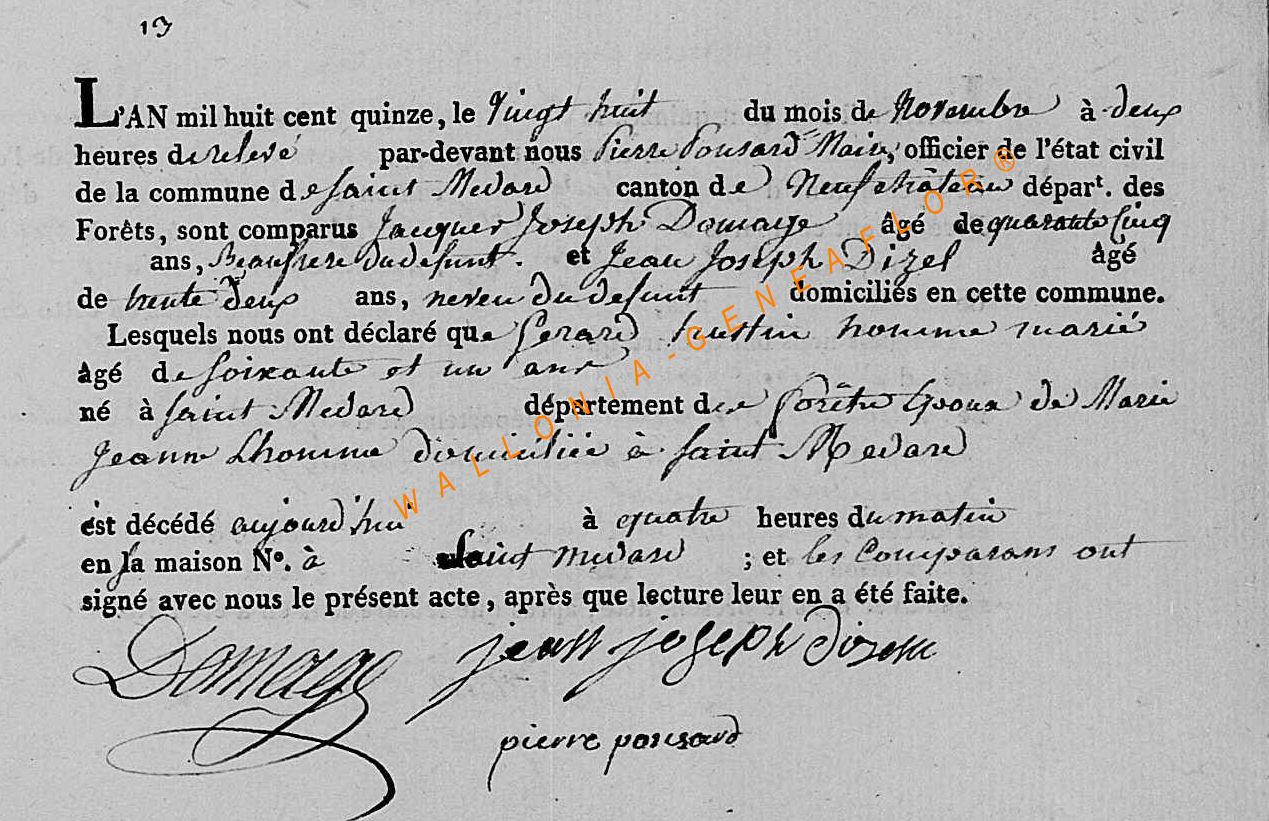 13
L'AN mil huit cent quinze, le Vingt huit du mois de Novembre à deux
heures de relevé par-devant nous Pierre Pousard Maire, officier de l'état civil
de la commune de Saint Medard canton de Neufchâteau départ. des
Forêts, sont comparus Jacques Joseph Domage âgé de quarante Cinq
ans, Beaufrere du defunt. et Jean Joseph Dizel âgé
de trente deux ans, neveu du defunt domiciliés en cette commune.
Lesquels nous ont déclaré que Gerard hustin homme marié
âgé de Soixante et un ans
né à Saint Medard département des forêts Epoux de Marie
Jeanne Lhomme domiciliée à Saint Medard
est décédé aujourd'hui à quatre heures du matin
en la maison N°. à Saint medard ; et les Comparans ont
signé avec nous le présent acte, après que lecture leur en a été faite.
Domage jean joseph dizelle
pierre pousard
WALLONIA-GENEAFLOR®